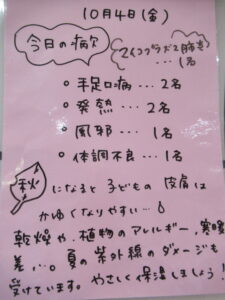 10月4日(金)
今日の病欠
マイコプラズマ肺炎
…1名
○ 手足口病 … 2名
○ 発熱 … 2名
○ 風邪 … 1名
○ 体調不良 … 1名
秋 になると 子どもの 皮膚は
かゆくなりやすい…
乾燥や、植物のアレルギー、寒暖
差…。夏の紫外線のダメージも
受けています。やさしく保湿しましょう!